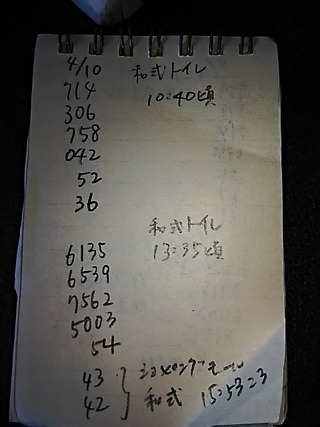 4/10 和式トイレ
714 10:40頃
306
758
042
52
36
和式トイレ
6135 13:35頃
6539
7562
5003
54
43 ショッピングモール
42 和式 15:53:23